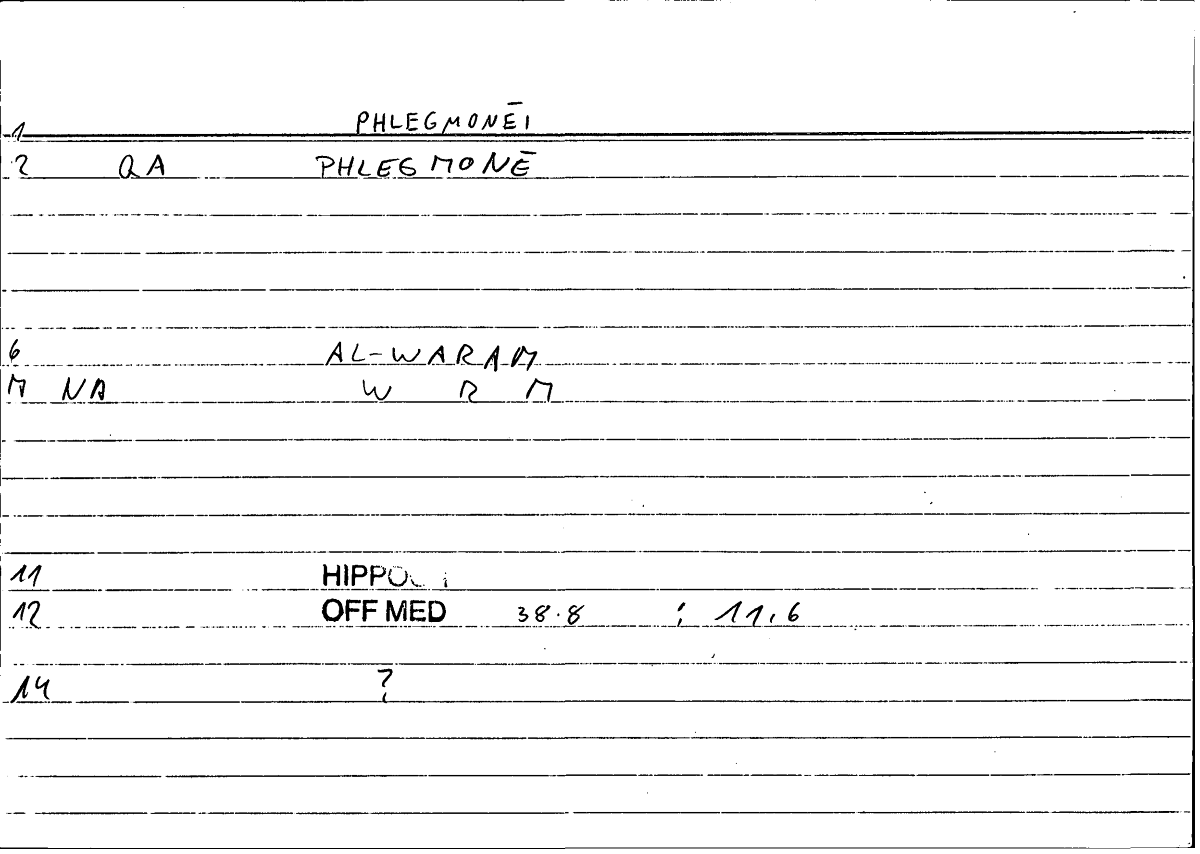 1 PHLEGMONĒI
2 QA PHLEGMONĒ
6 AL-WARAM
M NA W R M
11
12 OFF MED 38.8 ; 11,6
14 ?